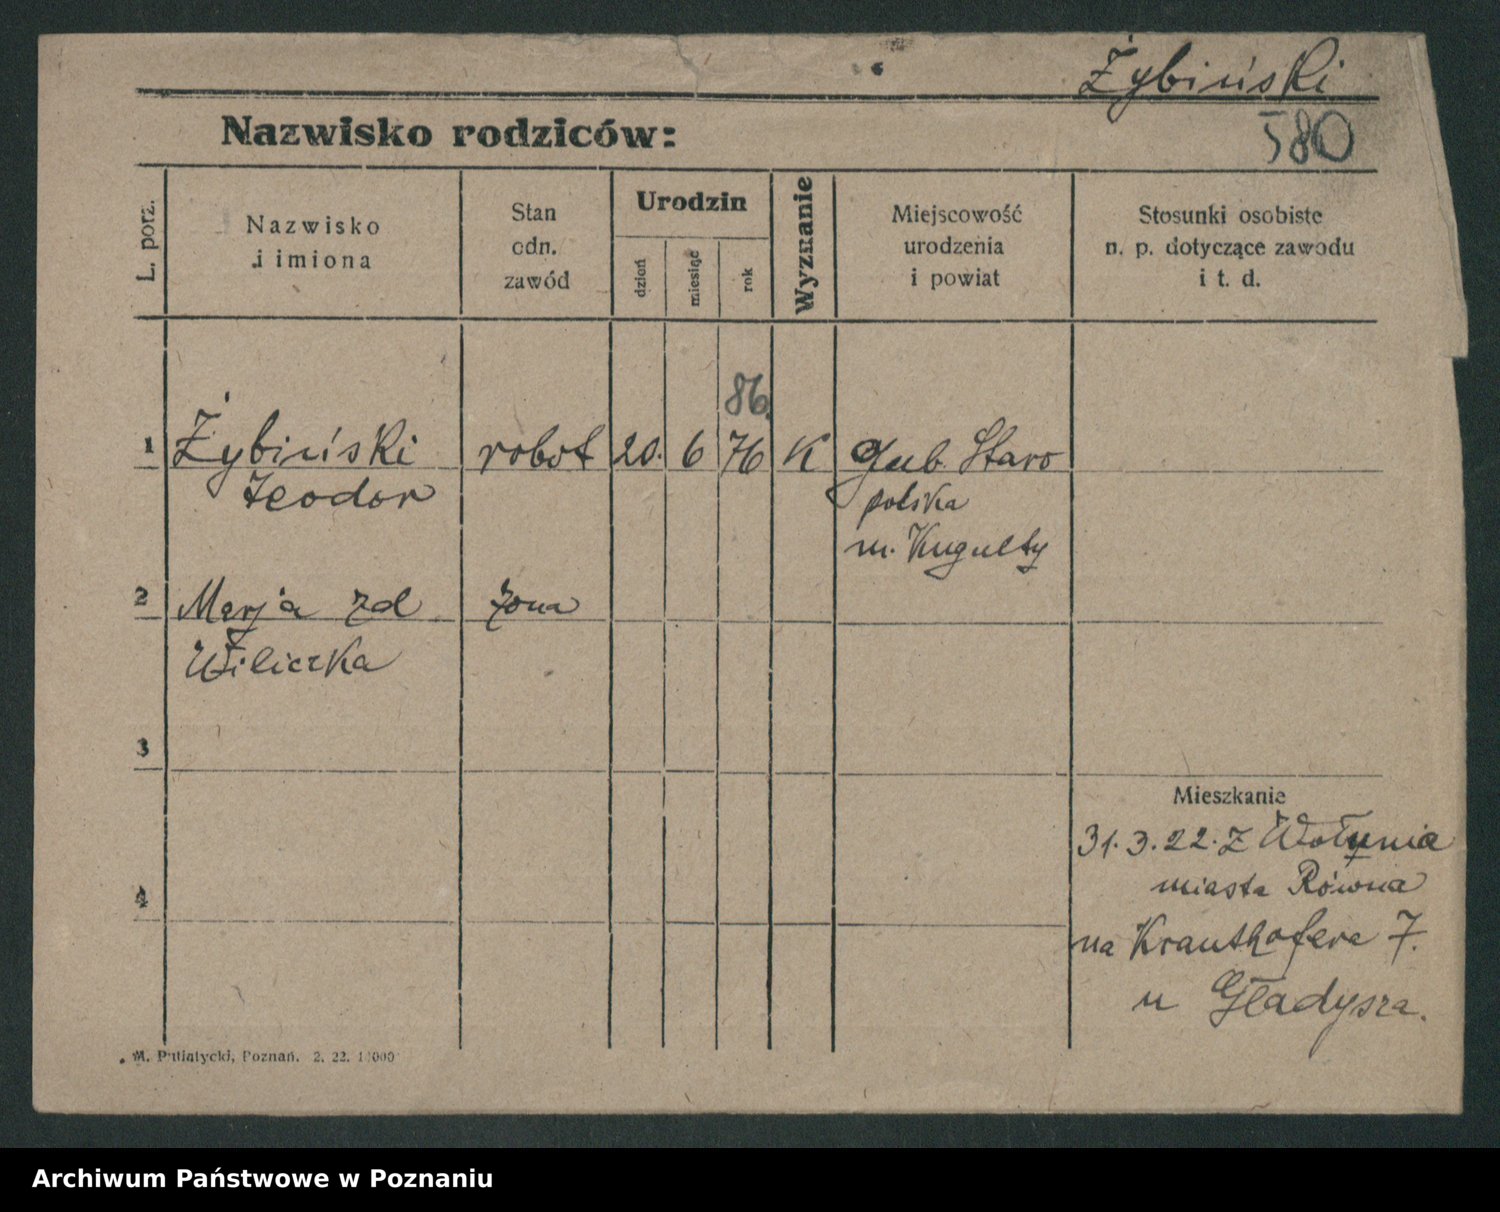 Żybiński
Nazwisko rodziców:
580
L. porz.
Nazwisko
i imiona
Stan
odn.
zawód
Urodzin
dzień
miesiąc
rok
Wyznanie
Miejscowość
urodzenia
i powiat
Stosunki osobiste
n. p. dotyczące zawodu
i t. d.
86
1 Żybiński robot 20. 6 76 K Gub. Staro
Teodor polska
m. Kugulty
2 Marja zd żona
Wiliczka
3
Mieszkanie
31.3.22. z Wołynia
miasta Równa
4
na Krauthofera 7.
u Gładysza.
M. Putiatycki, Poznań. 2. 22. 11000
Archiwum Państwowe w Poznaniu